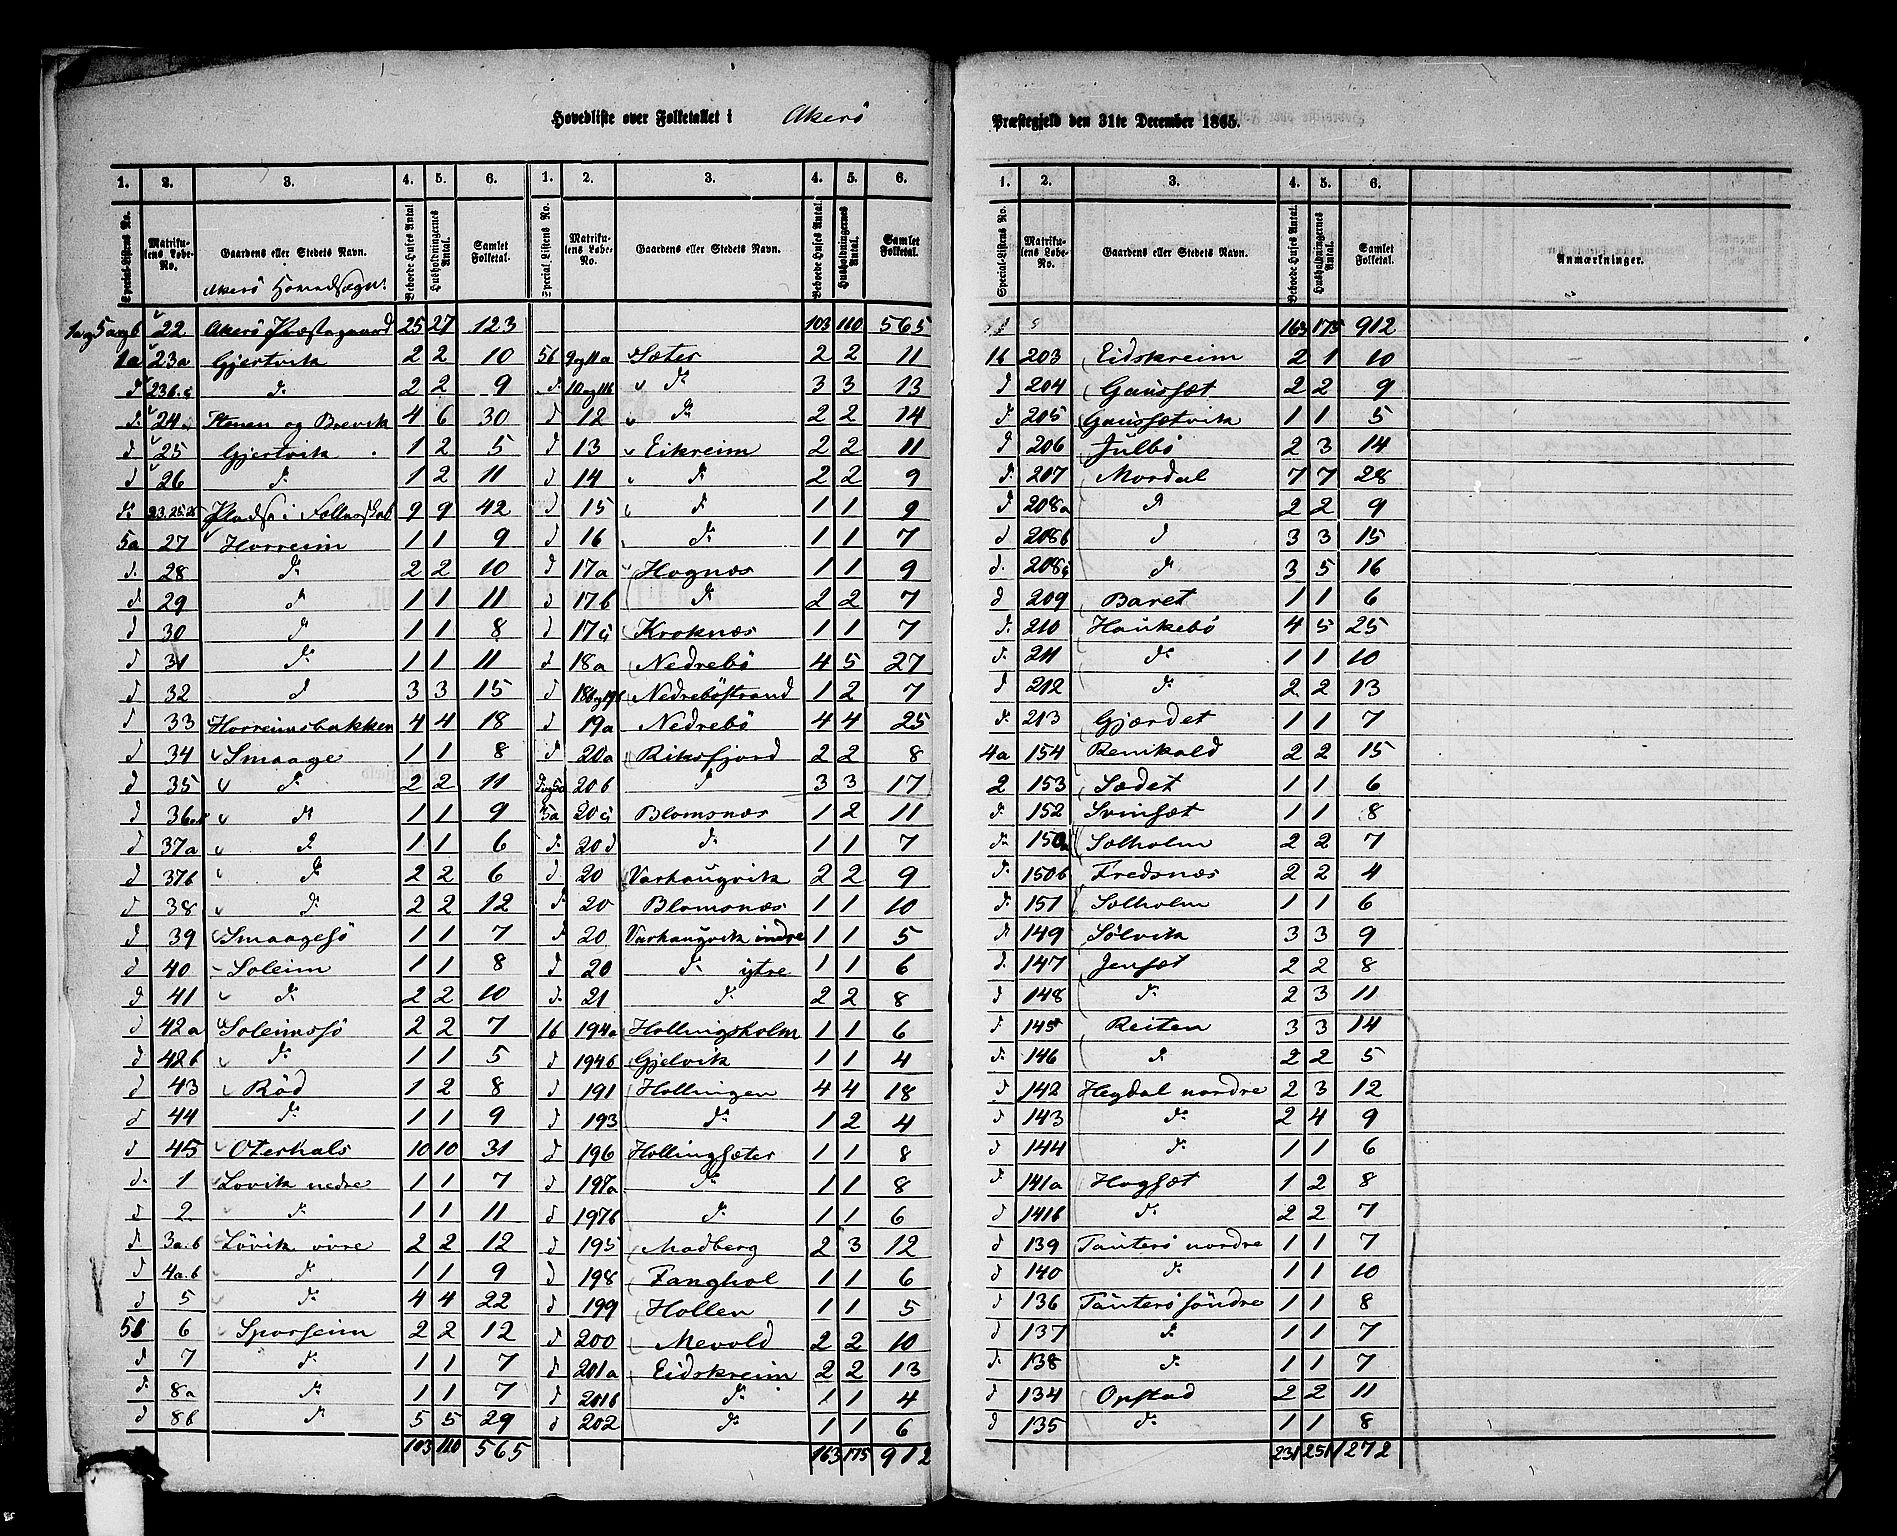 Hovedliste over Folketallet i Akerö Præstegjeld den 31te December 1865.
1. 2. 3. 4. 5. 6. 1. 2. 3. 4. 5. 6. 1. 2. 3. 4. 5. 6.
Special-Listens No. Matrikulens Løbe-No. Gaardens eller Stedets Navn. Beboede Huses Antal. Husholdningernes Antal. Samlet Folketal. Special-Listens No. Matrikulens Løbe-No. Gaardens eller Stedets Navn. Beboede Huses Antal. Husholdningernes Antal. Samlet Folketal. Special-Listens No. Matrikulens Løbe-No. Gaardens eller Stedets Navn. Beboede Huses Antal. Husholdningernes Antal. Samlet Folketal. Anmærkninger.
Akerö Hovedsogn.
22 Akerö Præstegaard 25 27 123
1a 23a Gjertvik 2 2 10
d 23b.c do 2 2 9
do 24 Stenen og Brevik 4 6 30
d 25 Gjertvik 1 2 5
d 26 do 1 2 11
do 23.25.26 Pladse i Fællesskab 9 9 42
5a 27 Horreim 1 1 9
d. 28 do 2 2 10
d 29 d 1 1 11
d 30 d 1 1 8
d 31 do 1 1 11
d 32 d 3 3 15
d 33 Horreimsbakken 4 4 18
d 34 Smaage 1 1 8
d 35 do 2 2 11
d 36 do 1 1 9
d 37a do 1 1 6
d 37b do 2 2 6
d 38 do 2 2 12
d 39 Smaagesö 1 1 7
d 40 Soleim 1 1 8
d 41 do 2 2 10
d 42a Soleimssö 2 2 7
d 42b do 1 1 5
d 43 Röd 1 2 8
d 44 do 1 1 9
d 45 Oterhals 10 10 31
d. 1 Lovik nedre 1 1 7
d 2 do 1 1 11
do 3a.b Lövik övre 2 2 12
d 4a.b do 1 1 9
d 5 do 4 4 22
5b 6 Sporseim 2 2 12
d 7 do 1 1 7
do 8a do 1 1 7
d 8b do 5 5 29
103 110 565
103 110 565
5b 9og11a Sæter 2 2 11
do 10og11b do 3 3 13
d 12 do 2 2 14
d 13 Eikreim 2 2 11
d 14 do 2 2 9
d 15 d 1 1 9
d 16 do 1 1 7
d 17a Hognæs 1 1 9
d 17b do 2 2 7
d 17c Kroknæs 1 1 7
d 18a Nedrebö 4 5 27
d 18bog19b Nedreböstrand 1 2 7
d 19a Nedrebö 4 4 25
do 20a Riksfjord 2 2 8
20b d 3 3 17
5a 20c Blomsnæs 1 2 11
do 20d do 1 1 7
d. 20 Varhaugvik 2 2 9
do 20 Blomsnæs 1 1 10
do 20 Varhaugvik indre 1 1 5
d 20 do ytre 1 1 6
d. 21 do 2 2 8
16 194a Hollingsholm 1 1 6
d 194b Gjelvik 1 1 4
d 191 Hollingen 4 4 18
d 193 do 1 2 4
d 196 Hollingsæter 1 1 8
d 197a do 1 1 8
d 197b do 1 1 6
d 195 Madberg 2 3 12
d 198 Fanghol 1 1 6
d 199 Hollen 1 1 5
d 200 Mevold 2 2 10
d 201a Eidskreim 2 2 13
d 201b do 1 1 4
d 202 do 1 1 6
163 175 912
163 175 912
16 203 Eidskreim 2 1 10
d 204 Gaussæt 2 2 9
do 205 Gaussætvik 1 1 5
d 206 Julbö 2 3 14
do 207 Mordal 7 7 28
d 208a d 2 2 9
d 208b d 3 3 15
d. 208c do 3 5 16
d 209 Baret 1 1 6
d. 210 Haukebö 4 5 25
do 211 do 1 1 10
d 212 do 2 2 13
do 213 Gjærdet 1 1 7
4a 154 Remkald 2 2 15
2 153 Sædet 1 1 6
do 152 Svinsæt 1 1 8
do 150a Solholm 2 2 7
do 150b Fredsnæs 2 2 4
do 151 Solholm 1 1 6
do 149 Sölvik 3 3 9
d. 147 Jensæt 2 2 8
d 148 do 2 3 11
d 145 Reiten 3 3 14
do 146 do 2 2 5
d 142 Hegdal nordre 2 3 12
d 143 do 2 4 9
d 144 do 1 1 6
do 141a Hogsæt 1 2 8
d 141b do 2 2 7
d 139 Tauterö nordre 1 1 7
d 140 do 1 1 10
d 136 Tauterö söndre 1 1 8
d 137 do 1 1 7
do 138 do 1 1 7
d 134 Opstad 2 2 11
d 135 do 1 1 8
231 251 1272